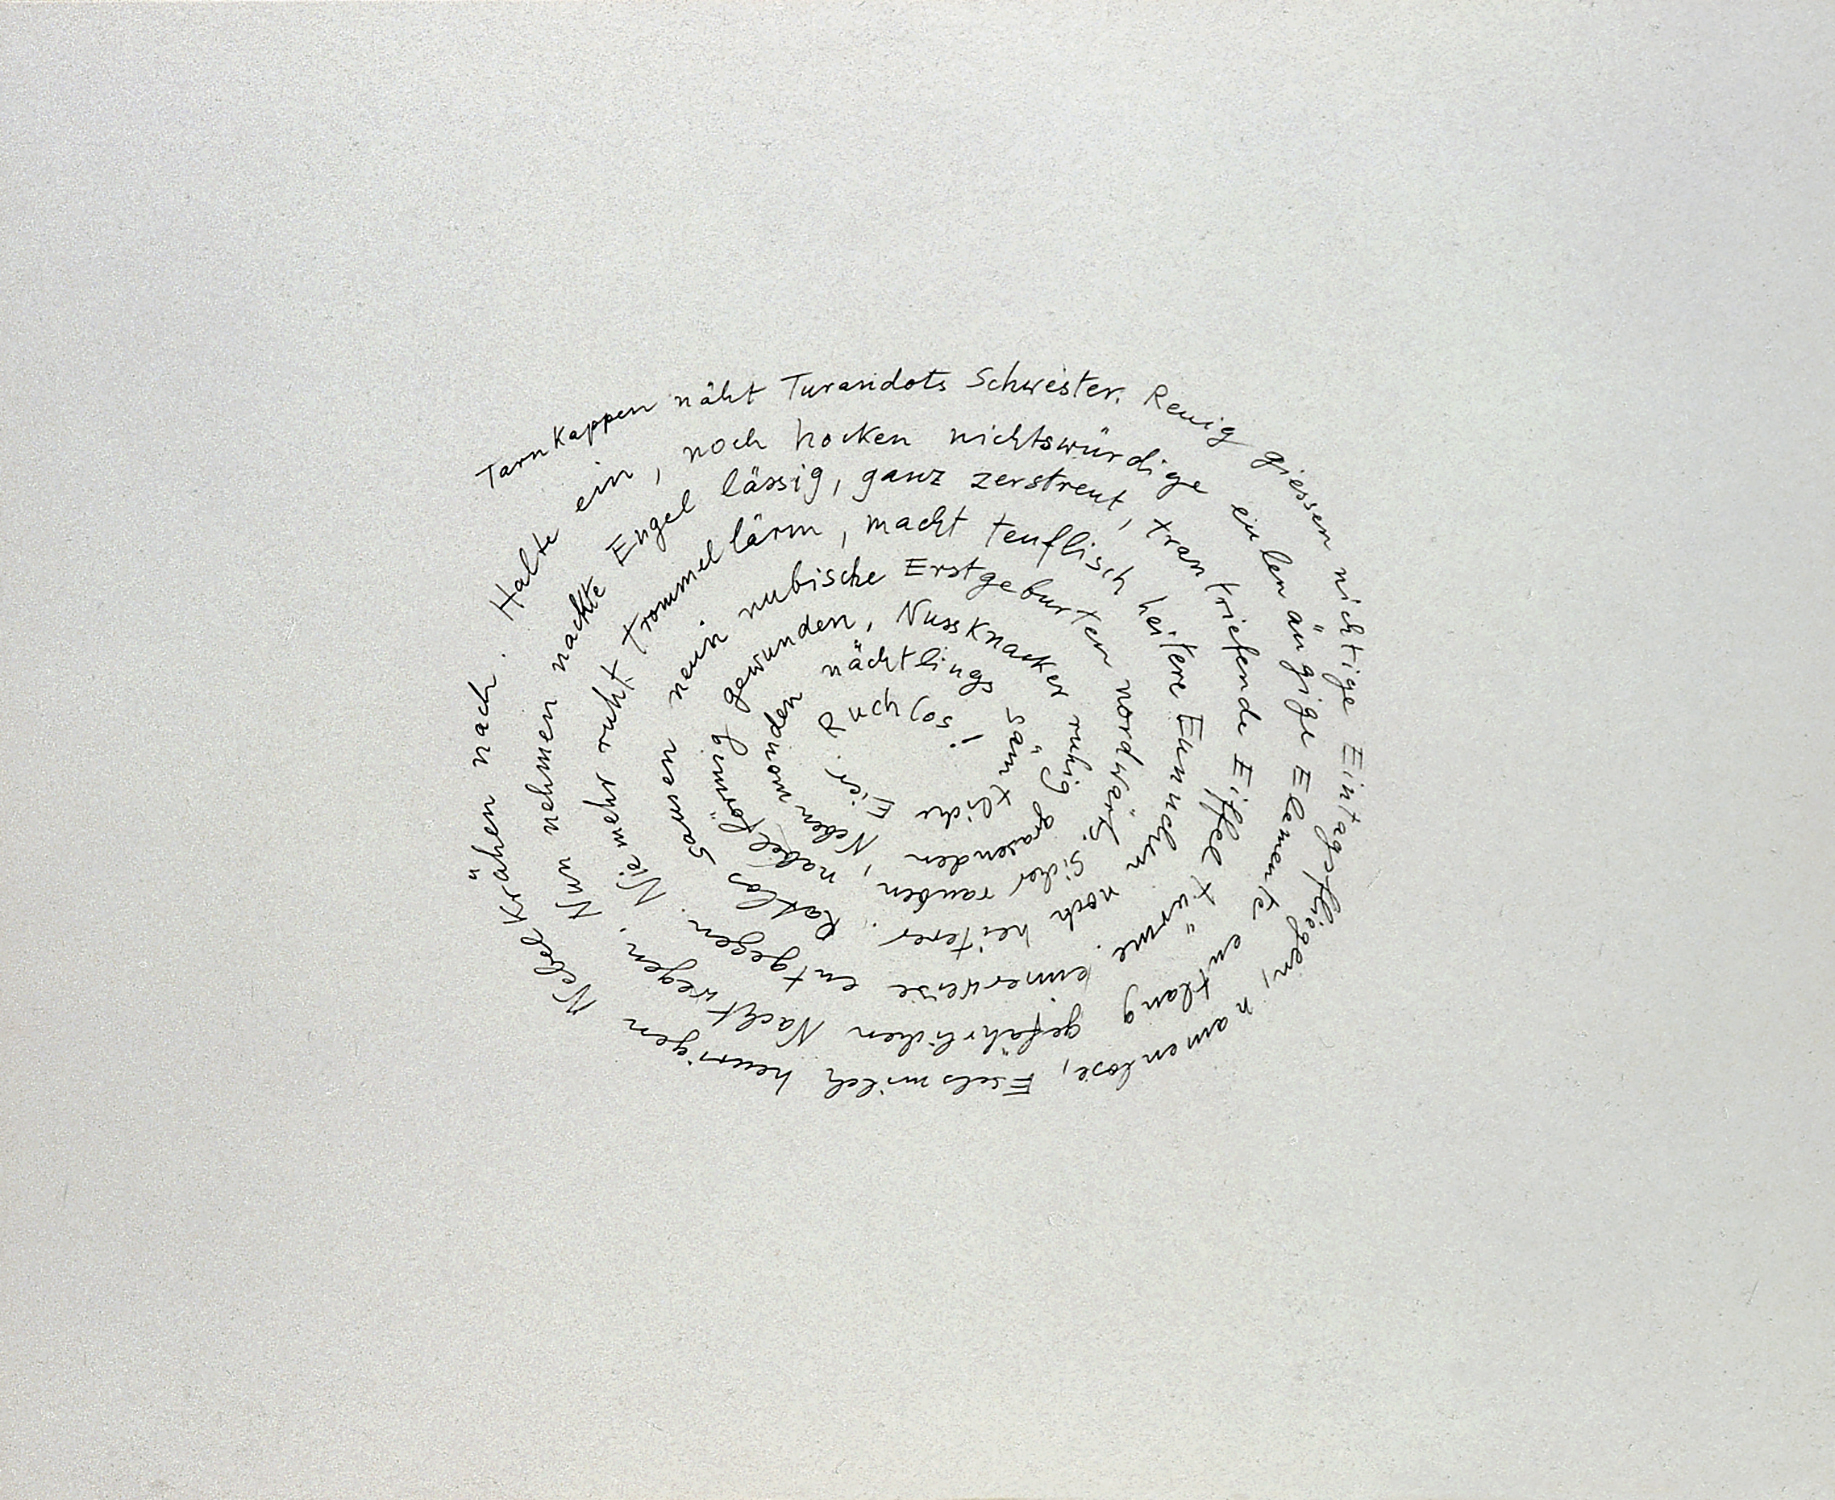 Tarnkappen näht Turandots Schwester. Reuig giessen nichtige Eintagsfliegen, namenlose, Eselsmilch heurigen Nebelkrähen nach.
Halte ein, noch hocken nichtswürdige eulenäugige Elemente entlang gefährlichen Nachtwegen.
Nun nehmen nackte Engel lässig, ganz zerstreut, trantriefende Eiffeltürme eimerweise entgegen.
Niemehr ruht Trommellärm, macht teuflisch heitere Eunuchen noch heiterer.
Ratlos sausen neun nubische Erstgeburten nordwärts. Sicher rauben,
nabelförmig gewunden, Nussknacker ruhig grasenden
Nebenmonden nächtlings sämtliche Eier.
Ruchlos!